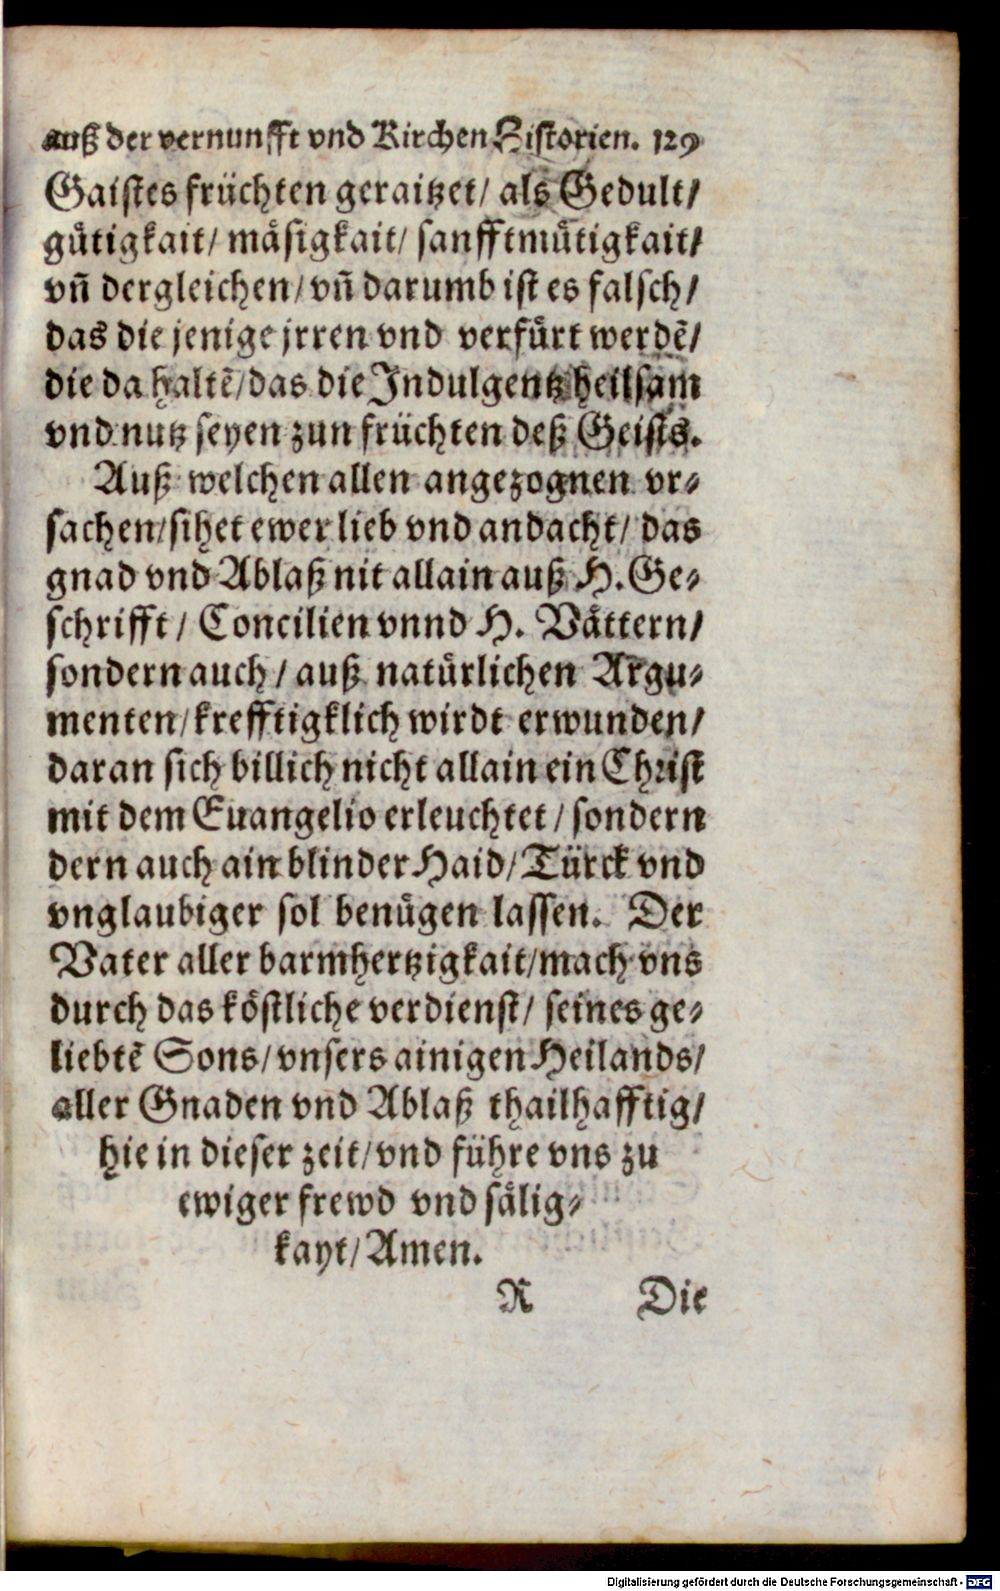 auß der vernunfft vnd Kirchen Historien. 129
Gaistes früchten geraitzet/ als Gedult/
gůtigkait/ måsigkait/ sanfftmůtigkait/
vñ dergleichen/ vñ darumb ist es falsch/
das die jenige jrren vnd verfůrt werdẽ/
die da haltẽ/ das die Indulgentz heilsam
vnd nutz seyen zun früchten deß Geists.
Auß welchen allen angezognen vr⸗
sachen/ sihet ewer lieb vnd andacht/ das
gnad vnd Ablaß nit allain auß H. Ge⸗
schrifft/ Concilien vnnd H. Våttern/
sondern auch/ auß natůrlichen Argu⸗
menten/ krefftigklich wirdt erwunden/
daran sich billich nicht allain ein Christ
mit dem Euangelio erleuchtet/ sondern
dern auch ain blinder Haid/ Türck vnd
vnglaubiger sol benůgen lassen. Der
Vater aller barmhertzigkait/ mach vns
durch das kôstliche verdienst/ seines ge⸗
liebtẽ Sons/ vnsers ainigen Heilands/
aller Gnaden vnd Ablaß thailhafftig/
hie in dieser zeit/ vnd führe vns zu
ewiger frewd vnd sålig⸗
kayt/ Amen.
R Die
Digitalisierung gefördert durch die Deutsche Forschungsgemeinschaft - DFG